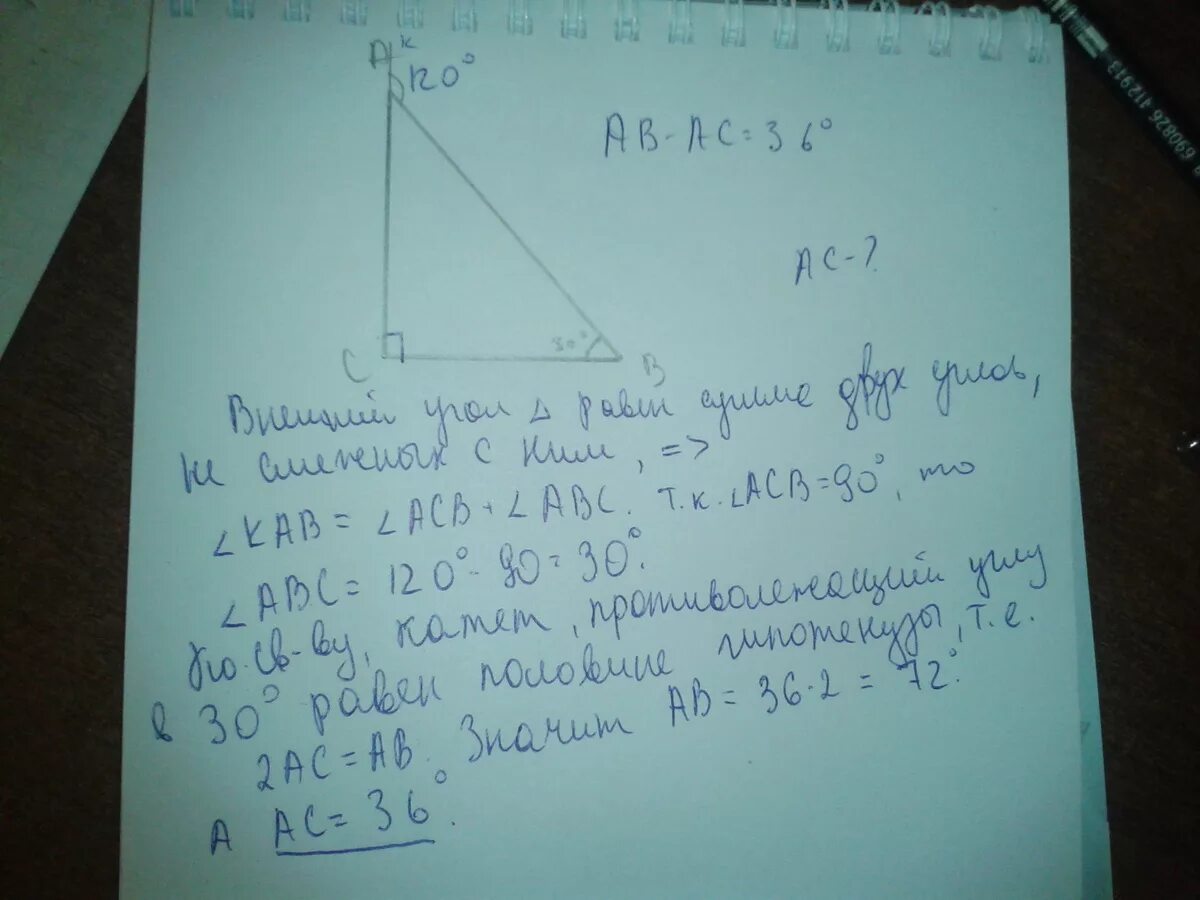 A K
120°
AB - AC = 36°
AC - ?
C 30° B
Внешний угол △ равен сумме двух углов,
не смежных с ним, =>
∠KAB = ∠ACB + ∠ABC. Т.к. ∠ACB = 90°, то
∠ABC = 120° - 90 = 30°.
По св-ву, катет, противолежащий углу
в 30° равен половине гипотенузы, т.е.
2AC = AB. Значит AB = 36·2 = 72°.
А AC = 36°.
690826 412913